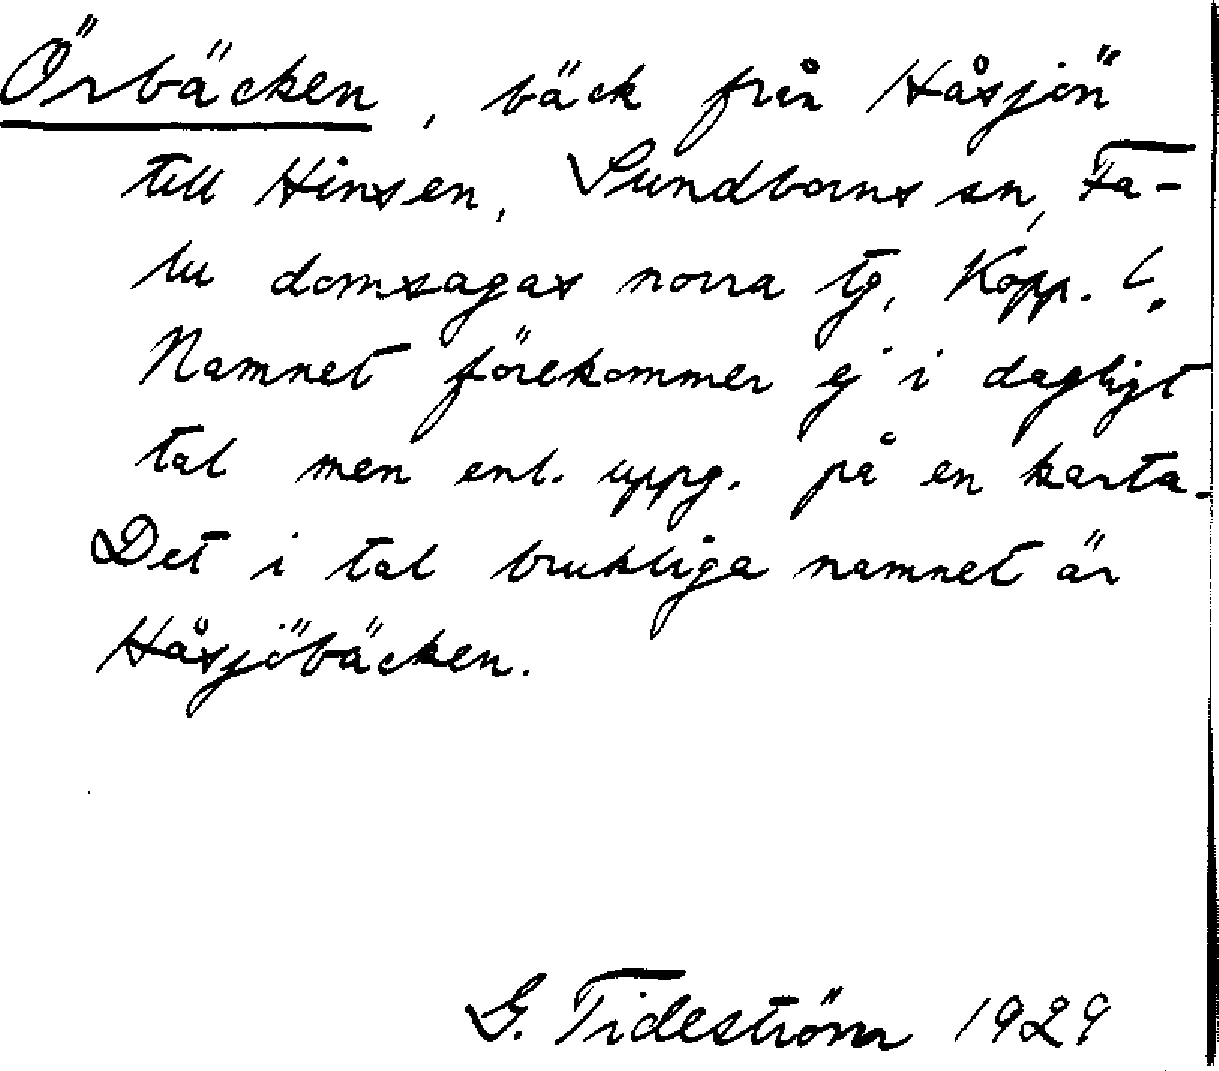 Örbäcken, bäck från Håsjön
till Hinsen, Sundborns sn, Fa-
lu domsagas norra tg, Kopp. l.
Namnet förekommer ej i dagligt
tal men enl. uppg. på en karta.
Det i tal brukliga namnet är
Håsjöbäcken.
G. Tideström 1929